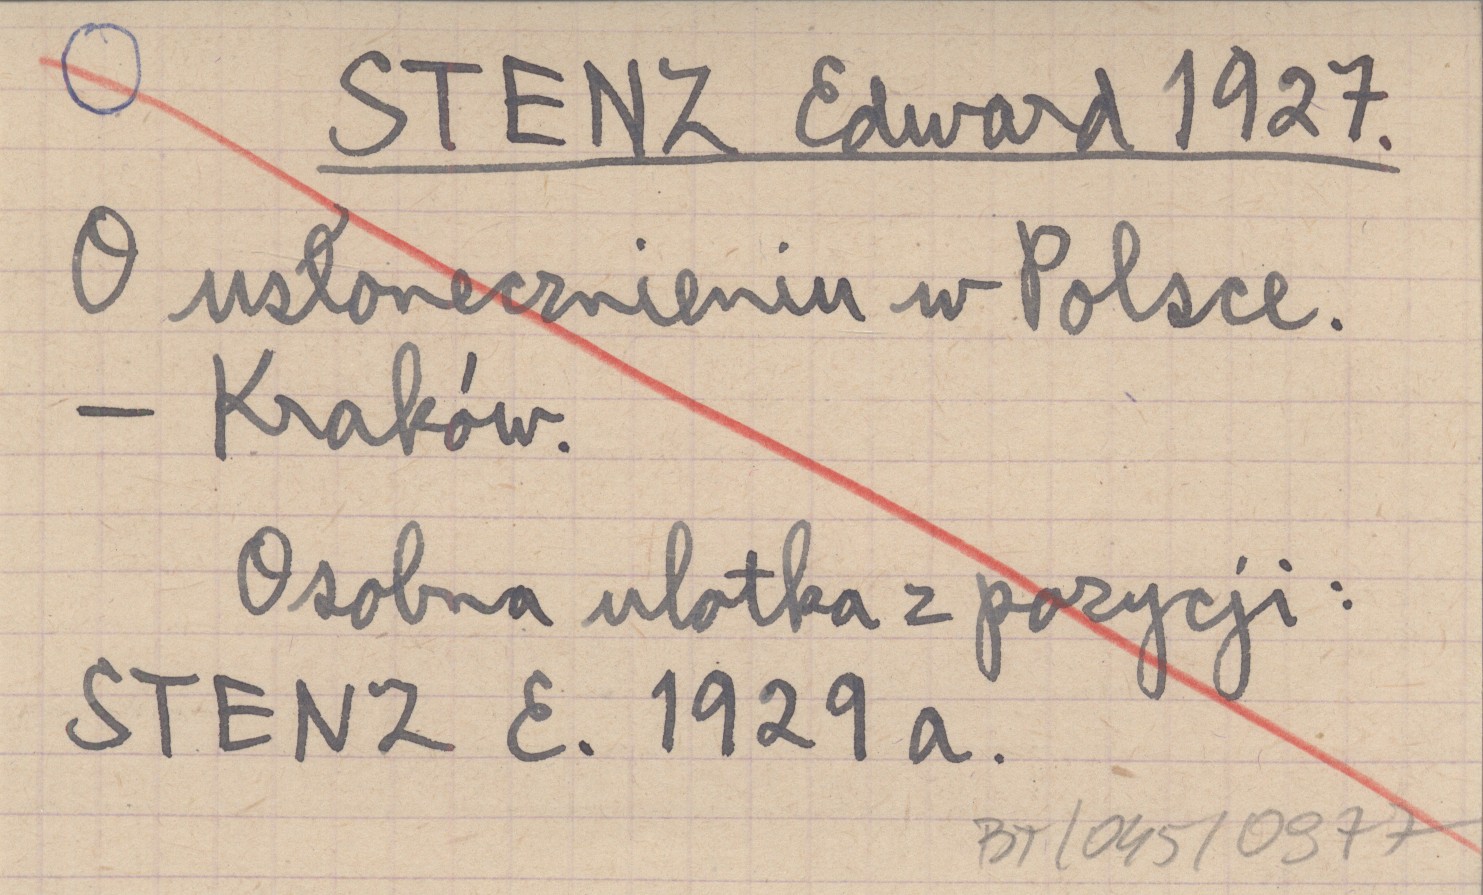 STENZ Edward 1927.
O usłonecznieniu w Polsce.
– Kraków.
Osobna ulotka z pozycji:
STENZ E. 1929a.
BT/045/0977